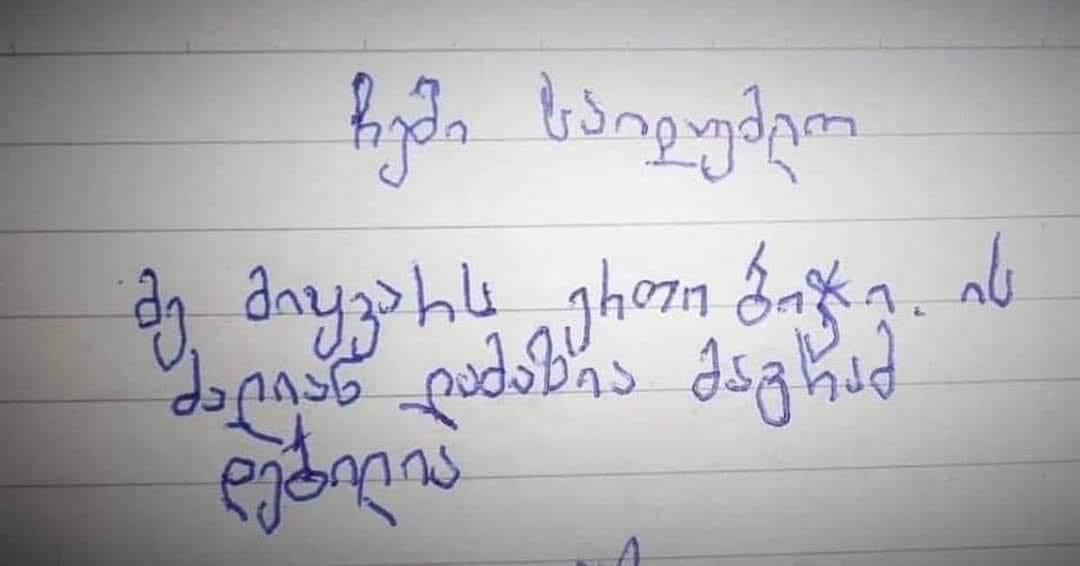 ჩემი საიდუმლო
მე მიყვარს ერთი ბიჭი. ის
ძალიან ლამაზია მაგრამ
დებილია